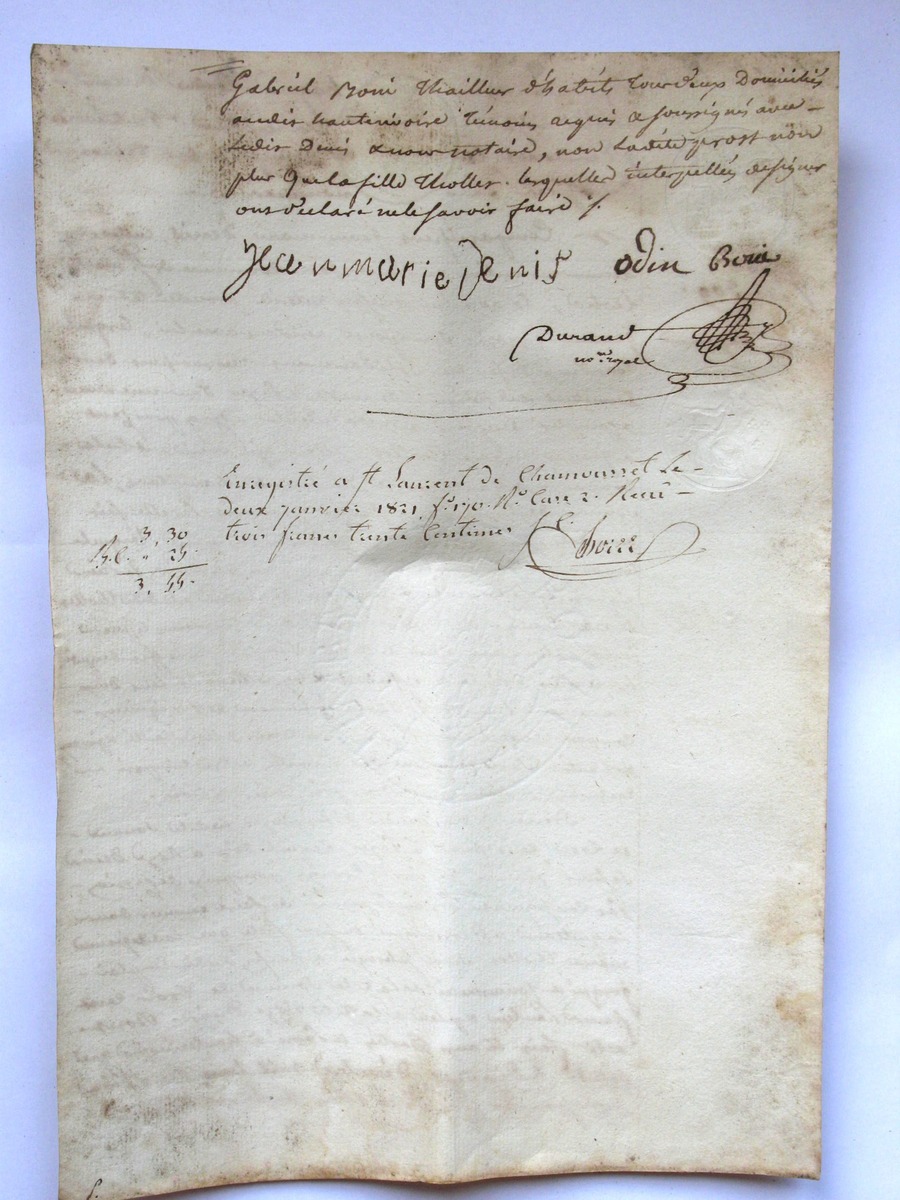 Gabriel Boni thailleur d'habits tous deux Domiciliés
audit hauterivoire témoins requis & soussignés avec
Ledit Denis & nous notaire, non Ladite prost non
plus que la fille thollet. lesquelles interpellées de signer
ont déclaré ne le savoir faire /.
Jean marie Denis odin Boni
Durand
no.re royal
Enregistré a St Laurent de Chamousset Le
deux janvier 1821 fo. 170. Ro. Case 2. Reçu
trois francs trente Centimes
3, 30
" 25.
3. 55.